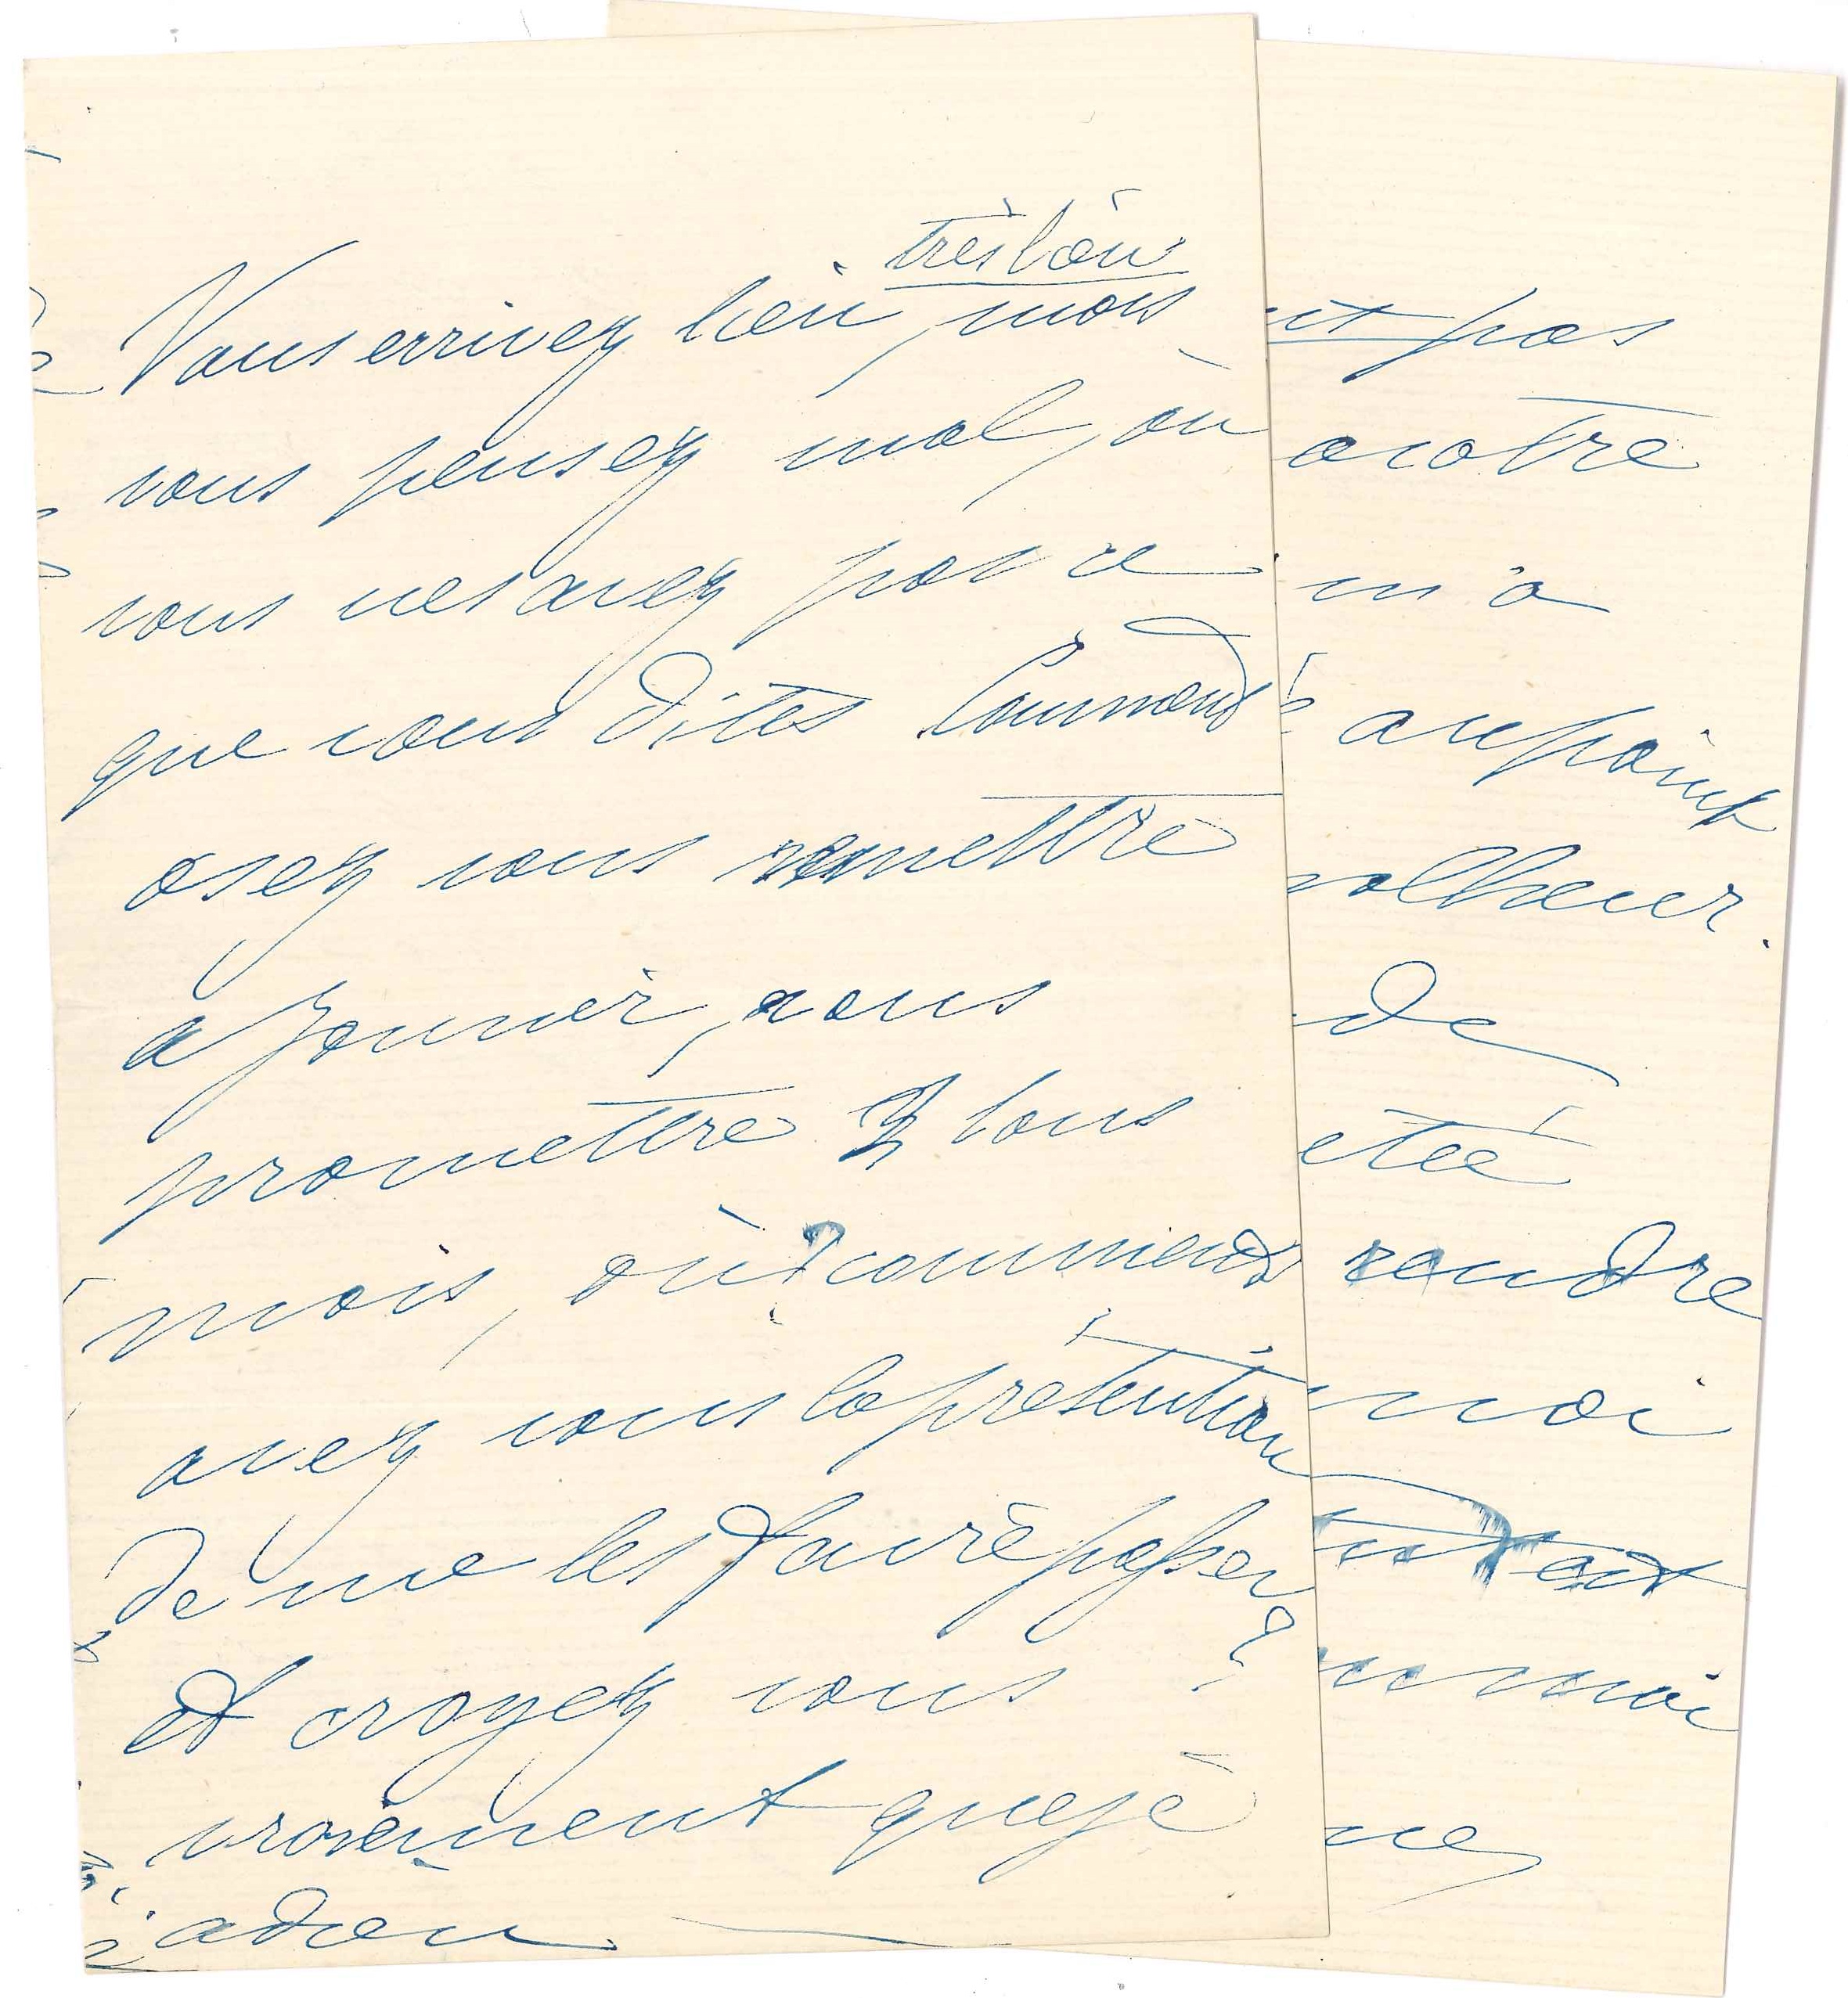 très loin
Vous errivez bien, mais
vous pensez mal, ou
vous ne savez pas ce
que vous dites Comment
osez vous remettre
a Janvier, vous
promettre 3 tous
mois, où? comment
avez vous la prétention
de me les faire passer?
et croyez vous
vraiement que je
adieu
pas
a votre
m'a
au point
malheur.
de
été
rendre
moi
moi
ne